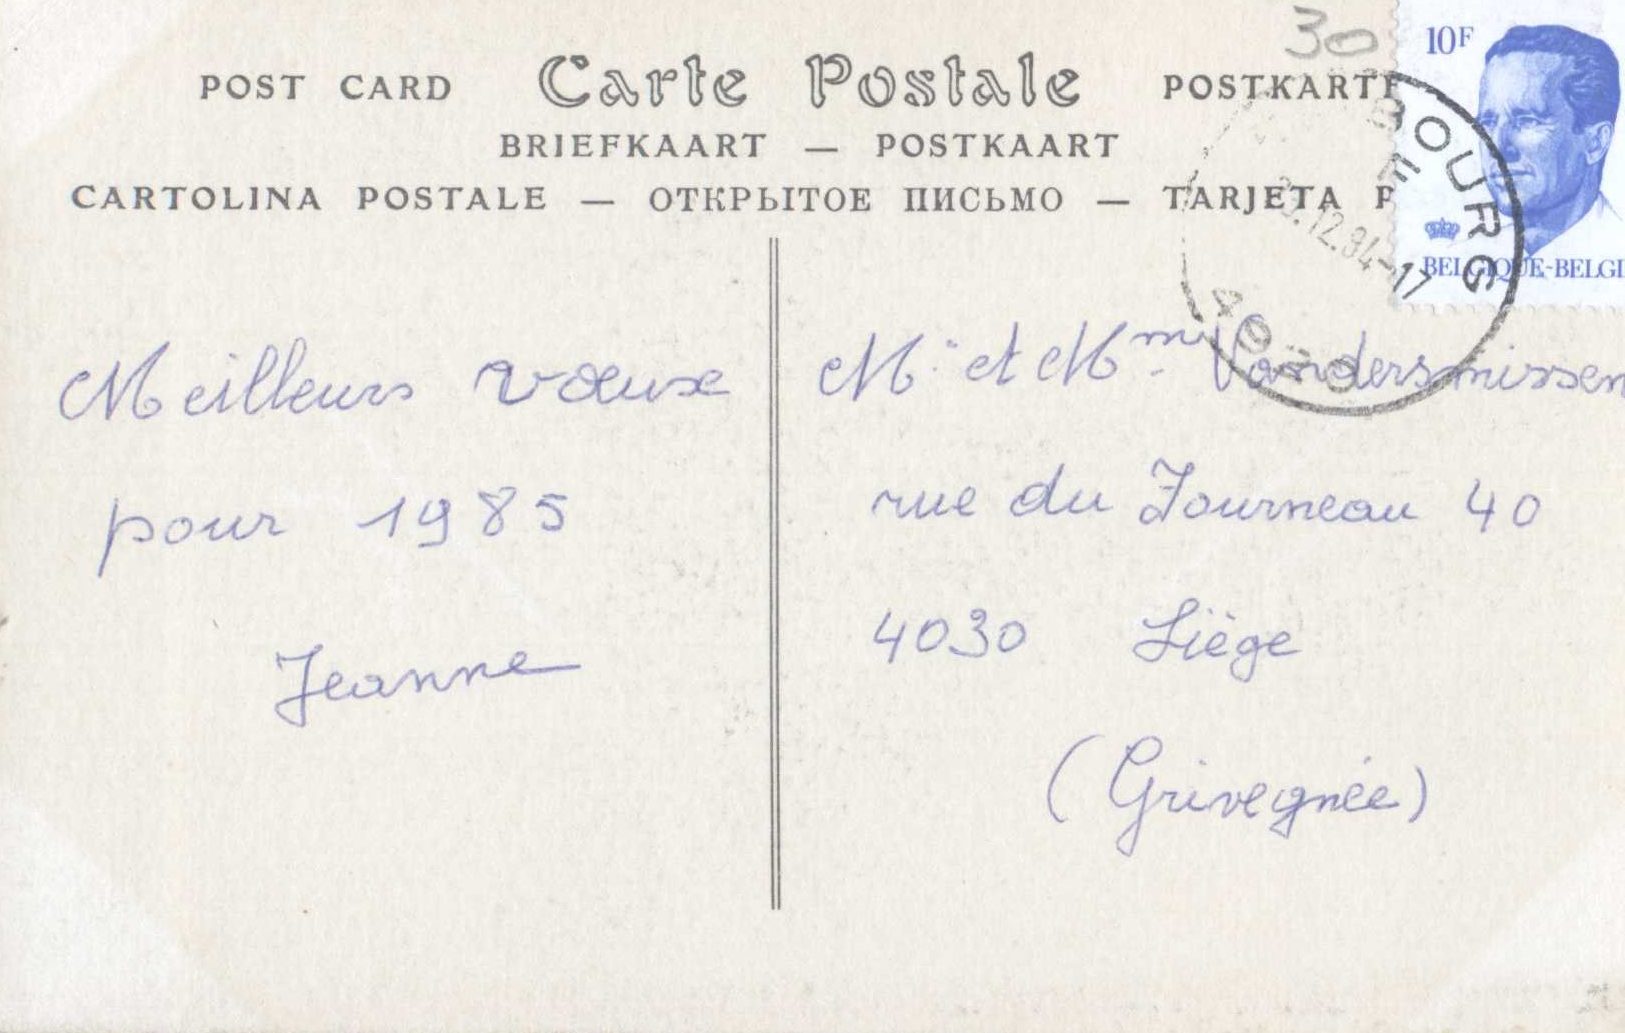 30
10F
POST CARD Carte Postale POSTKARTE
BRIEFKAART — POSTKAART
CARTOLINA POSTALE — ОТКРЫТОЕ ПИСЬМО — TARJETA P
BELGIQUE-BELGI
BOURG
E
.12.84-17
Meilleurs vœux
pour 1985
Jeanne
Mr et Mme Vandersmissen
rue du Fourneau 40
4030 Liège
(Grivegnée)